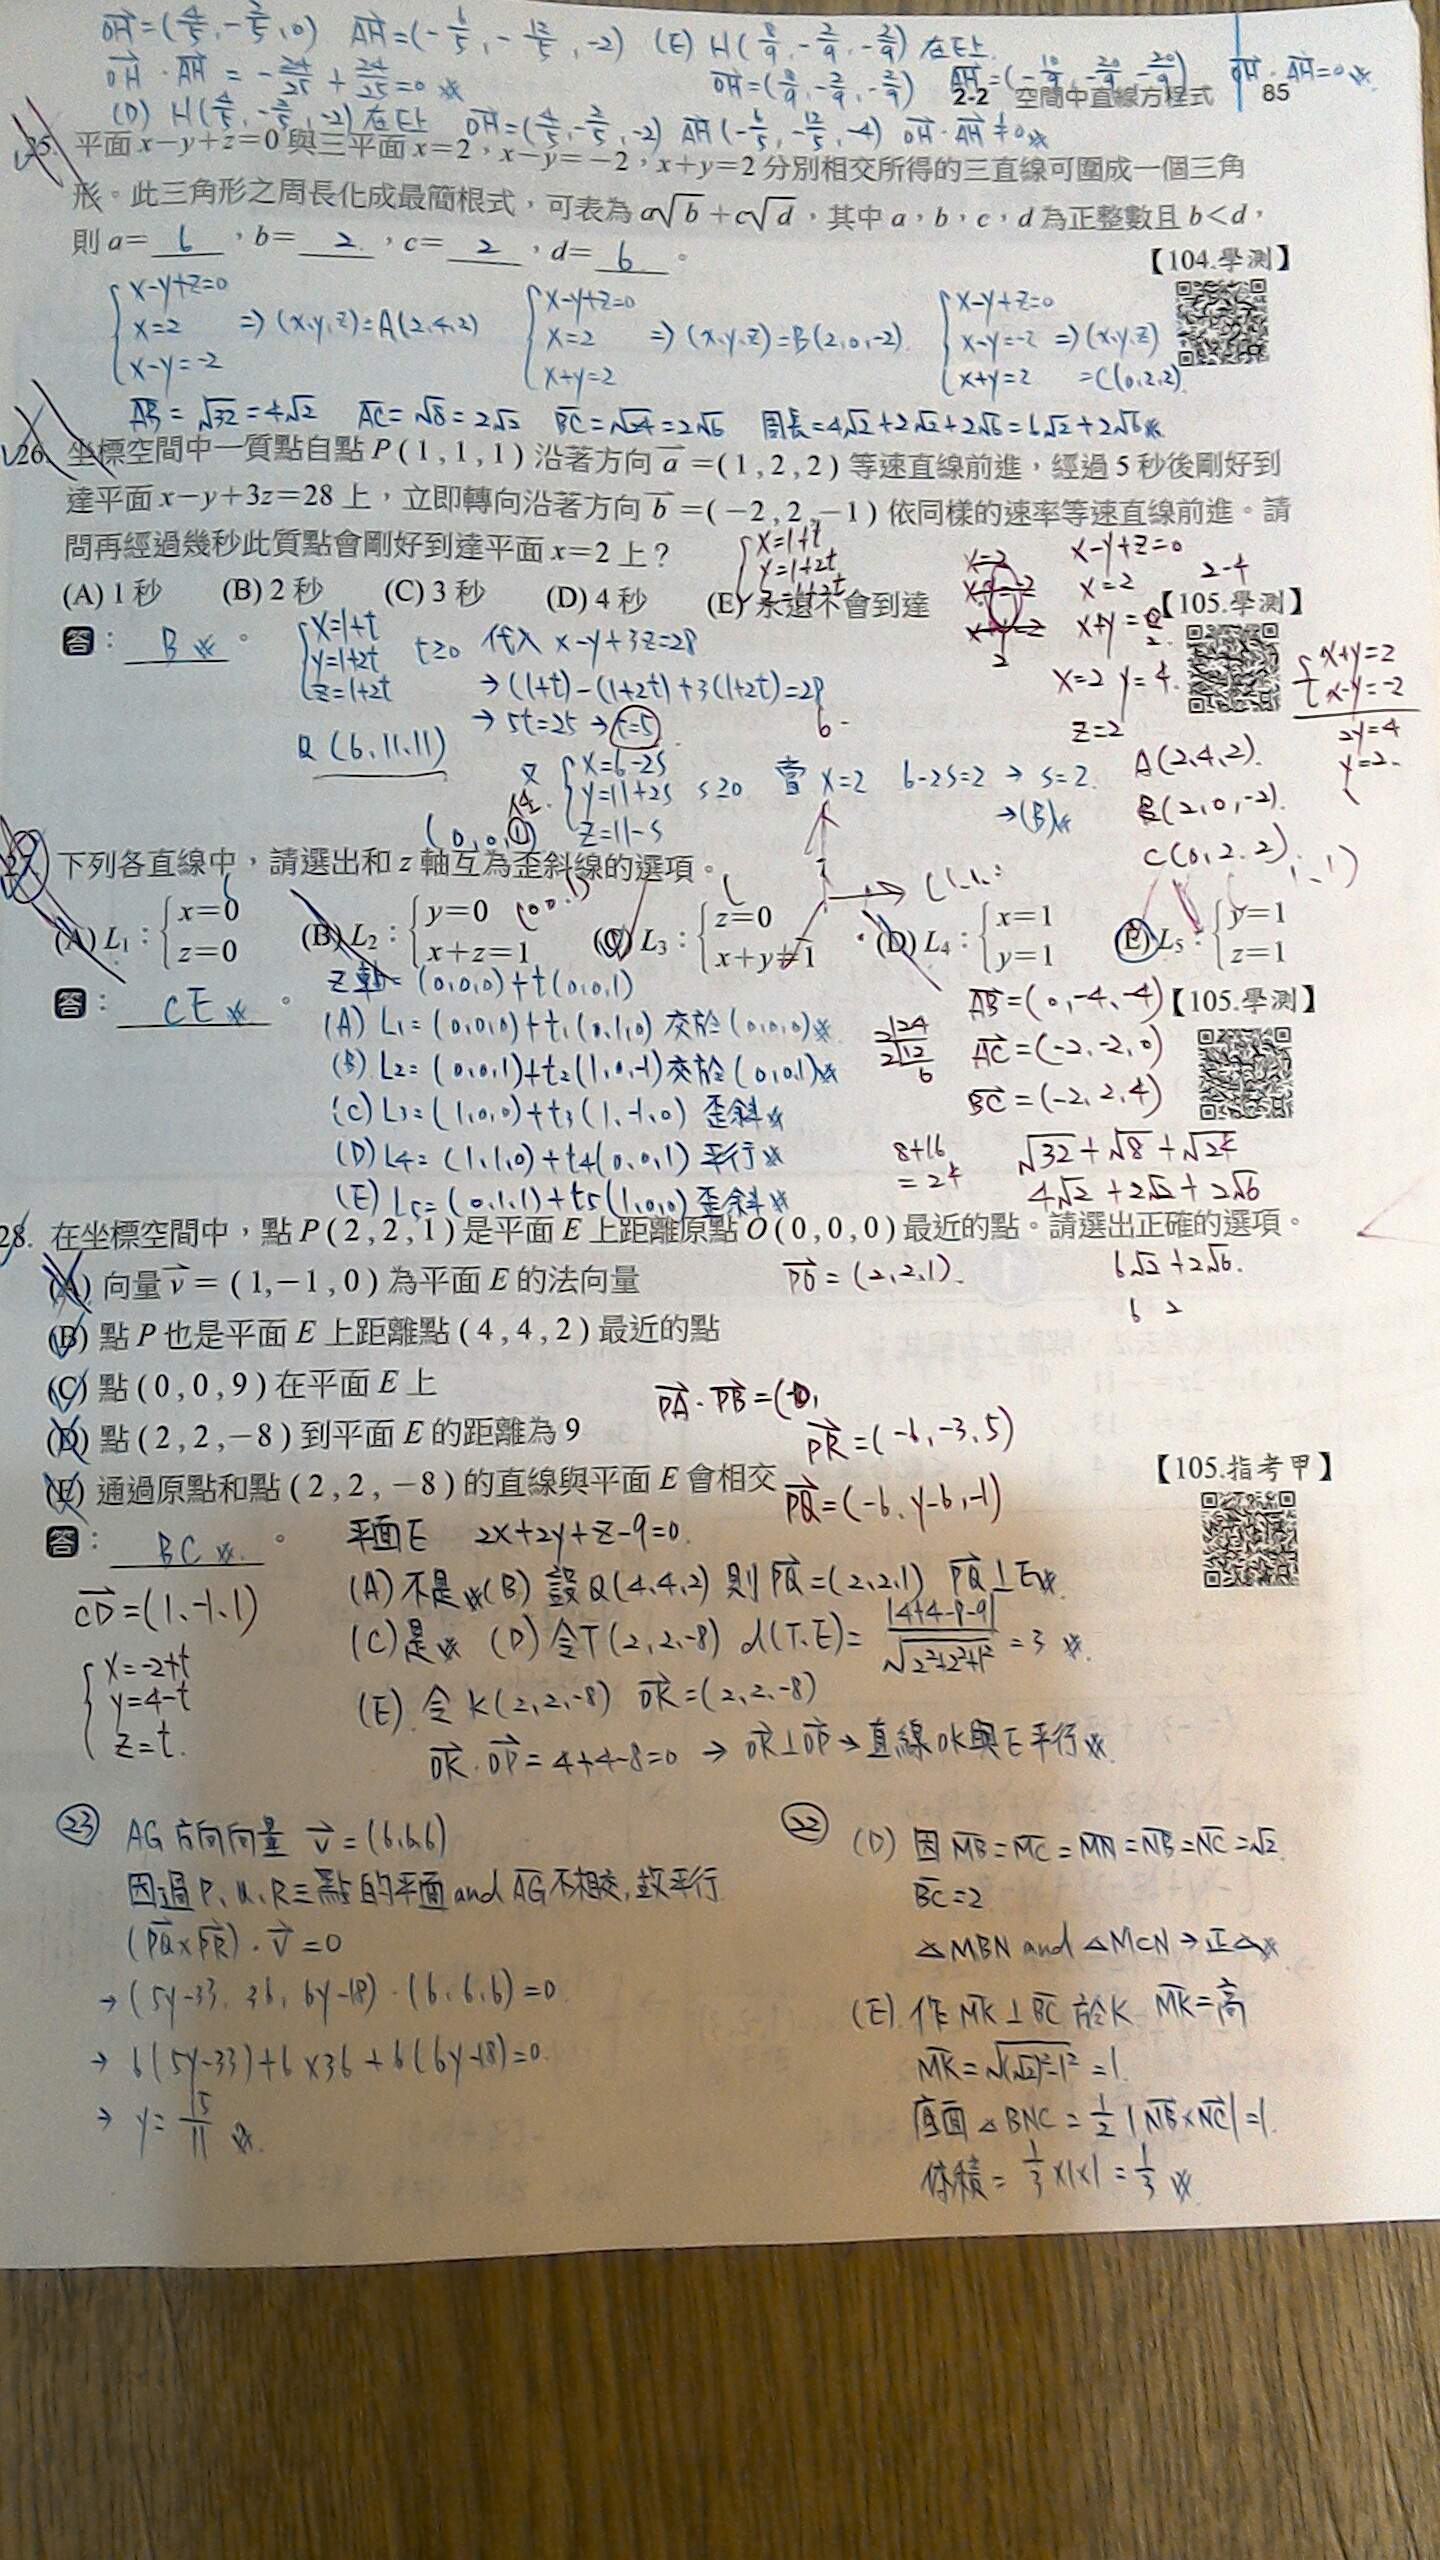 OH=(4/5,-2/5,0) AH=(-6/5,-12/5,-2) (E) H(8/9,-2/9,-2/9)在E上
OH·AH=-24/25+24/25=0 OH=(8/9,-2/9,-2/9) AH=(-10/9,-20/9,-20/9) OH·AH=0
2-2 空間中直線方程式 85
(D) H(4/5,-2/5,-2)在E上 OH=(4/5,-2/5,-2) AH(-6/5,-12/5,-4) OH·AH≠0
25. 平面x−y+z=0與三平面x=2,x−y=−2,x+y=2分別相交所得的三直線可圍成一個三角
形。此三角形之周長化成最簡根式,可表為a√b+c√d,其中a,b,c,d為正整數且b<d,
則a= 6 ,b= 2 ,c= 2 ,d= 6 。
【104.學測】
x-y+z=0
x=2 ⇒(x,y,z)=A(2,4,2)
x-y=-2
x-y+z=0
x=2 ⇒(x,y,z)=B(2,0,-2)
x+y=2
x-y+z=0
x-y=-2 ⇒(x,y,z)
x+y=2 =C(0,2,2)
AB=√32=4√2 AC=√8=2√2 BC=√24=2√6 周長=4√2+2√2+2√6=6√2+2√6
26. 坐標空間中一質點自點P(1,1,1)沿著方向a=(1,2,2)等速直線前進,經過5秒後剛好到
達平面x−y+3z=28上,立即轉向沿著方向b=(−2,2,−1)依同樣的速率等速直線前進。請
問再經過幾秒此質點會剛好到達平面x=2上?
x=1+t
y=1+2t
z=1+2t
(A) 1秒 (B) 2秒 (C) 3秒 (D) 4秒 (E) 永遠不會到達
【105.學測】
x-y+z=0
x=2
x+y=2
2-4
x=2 y=4
z=2
x+y=2
x-y=-2
2y=4
y=2
答: B 。
x=1+t
y=1+2t t≥0 代入 x-y+3z=28
z=1+2t
→(1+t)-(1+2t)+3(1+2t)=28
→5t=25→t=5
Q(6,11,11)
又 x=6-2s
y=11+2s s≥0 當x=2 6-2s=2 → s=2
z=11-s
→(B)
A(2,4,2)
B(2,0,-2)
C(0,2,2)
(0,0,1)
27. 下列各直線中,請選出和z軸互為歪斜線的選項。
(A) L1: x=0 z=0
(B) L2: y=0 x+z=1
(C) L3: z=0 x+y=1
(D) L4: x=1 y=1
(E) L5: y=1 z=1
【105.學測】
答: CE 。
z軸=(0,0,0)+t(0,0,1)
(A) L1=(0,0,0)+t1(0,1,0) 交於(0,0,0)
(B) L2=(0,0,1)+t2(1,0,-1) 交於(0,0,1)
(C) L3=(1,0,0)+t3(1,-1,0) 歪斜
(D) L4=(1,1,0)+t4(0,0,1) 平行
(E) L5=(0,1,1)+t5(1,0,0) 歪斜
AB=(0,-4,-4)
AC=(-2,-2,0)
BC=(-2,2,4)
2 24
2 12
6
8+16
=24
√32+√8+√24
4√2+2√2+2√6
6√2+2√6
6 2
28. 在坐標空間中,點P(2,2,1)是平面E上距離原點O(0,0,0)最近的點。請選出正確的選項。
(A) 向量v=(1,−1,0)為平面E的法向量
PO=(2,2,1)
(B) 點P也是平面E上距離點(4,4,2)最近的點
(C) 點(0,0,9)在平面E上
(D) 點(2,2,−8)到平面E的距離為9
(E) 通過原點和點(2,2,−8)的直線與平面E會相交
【105.指考甲】
PA·PB=
PR=(-6,-3,5)
PQ=(-6,y-6,-1)
答: BC 。
平面E 2x+2y+z-9=0
(A)不是 (B) 設Q(4,4,2) 則PQ=(2,2,1) PQ⊥E
(C)是 (D) 令T(2,2,-8) d(T,E)=|4+4-8-9|/√2²+2²+1²=3
(E) 令K(2,2,-8) OK=(2,2,-8)
OK·OP=4+4-8=0 → OK⊥OP→直線OK與E平行
CD=(1,-1,1)
x=-2+t
y=4-t
z=t
㉓ AG方向向量 v=(6,6,6)
因過P、Q、R三點的平面and AG不相交,故平行
(PQ×PR)·v=0
→(5y-33,36,6y-18)·(6,6,6)=0
→6(5y-33)+6×36+6(6y-18)=0
→y=15/11
㉒ (D) 因MB=MC=MN=NB=NC=√2
BC=2
△MBN and △MCN→正△
(E) 作MK⊥BC於K MK=高
MK=√(√2)²-1²=1
底面△BNC=1/2|NB×NC|=1
体積=1/3×1×1=1/3